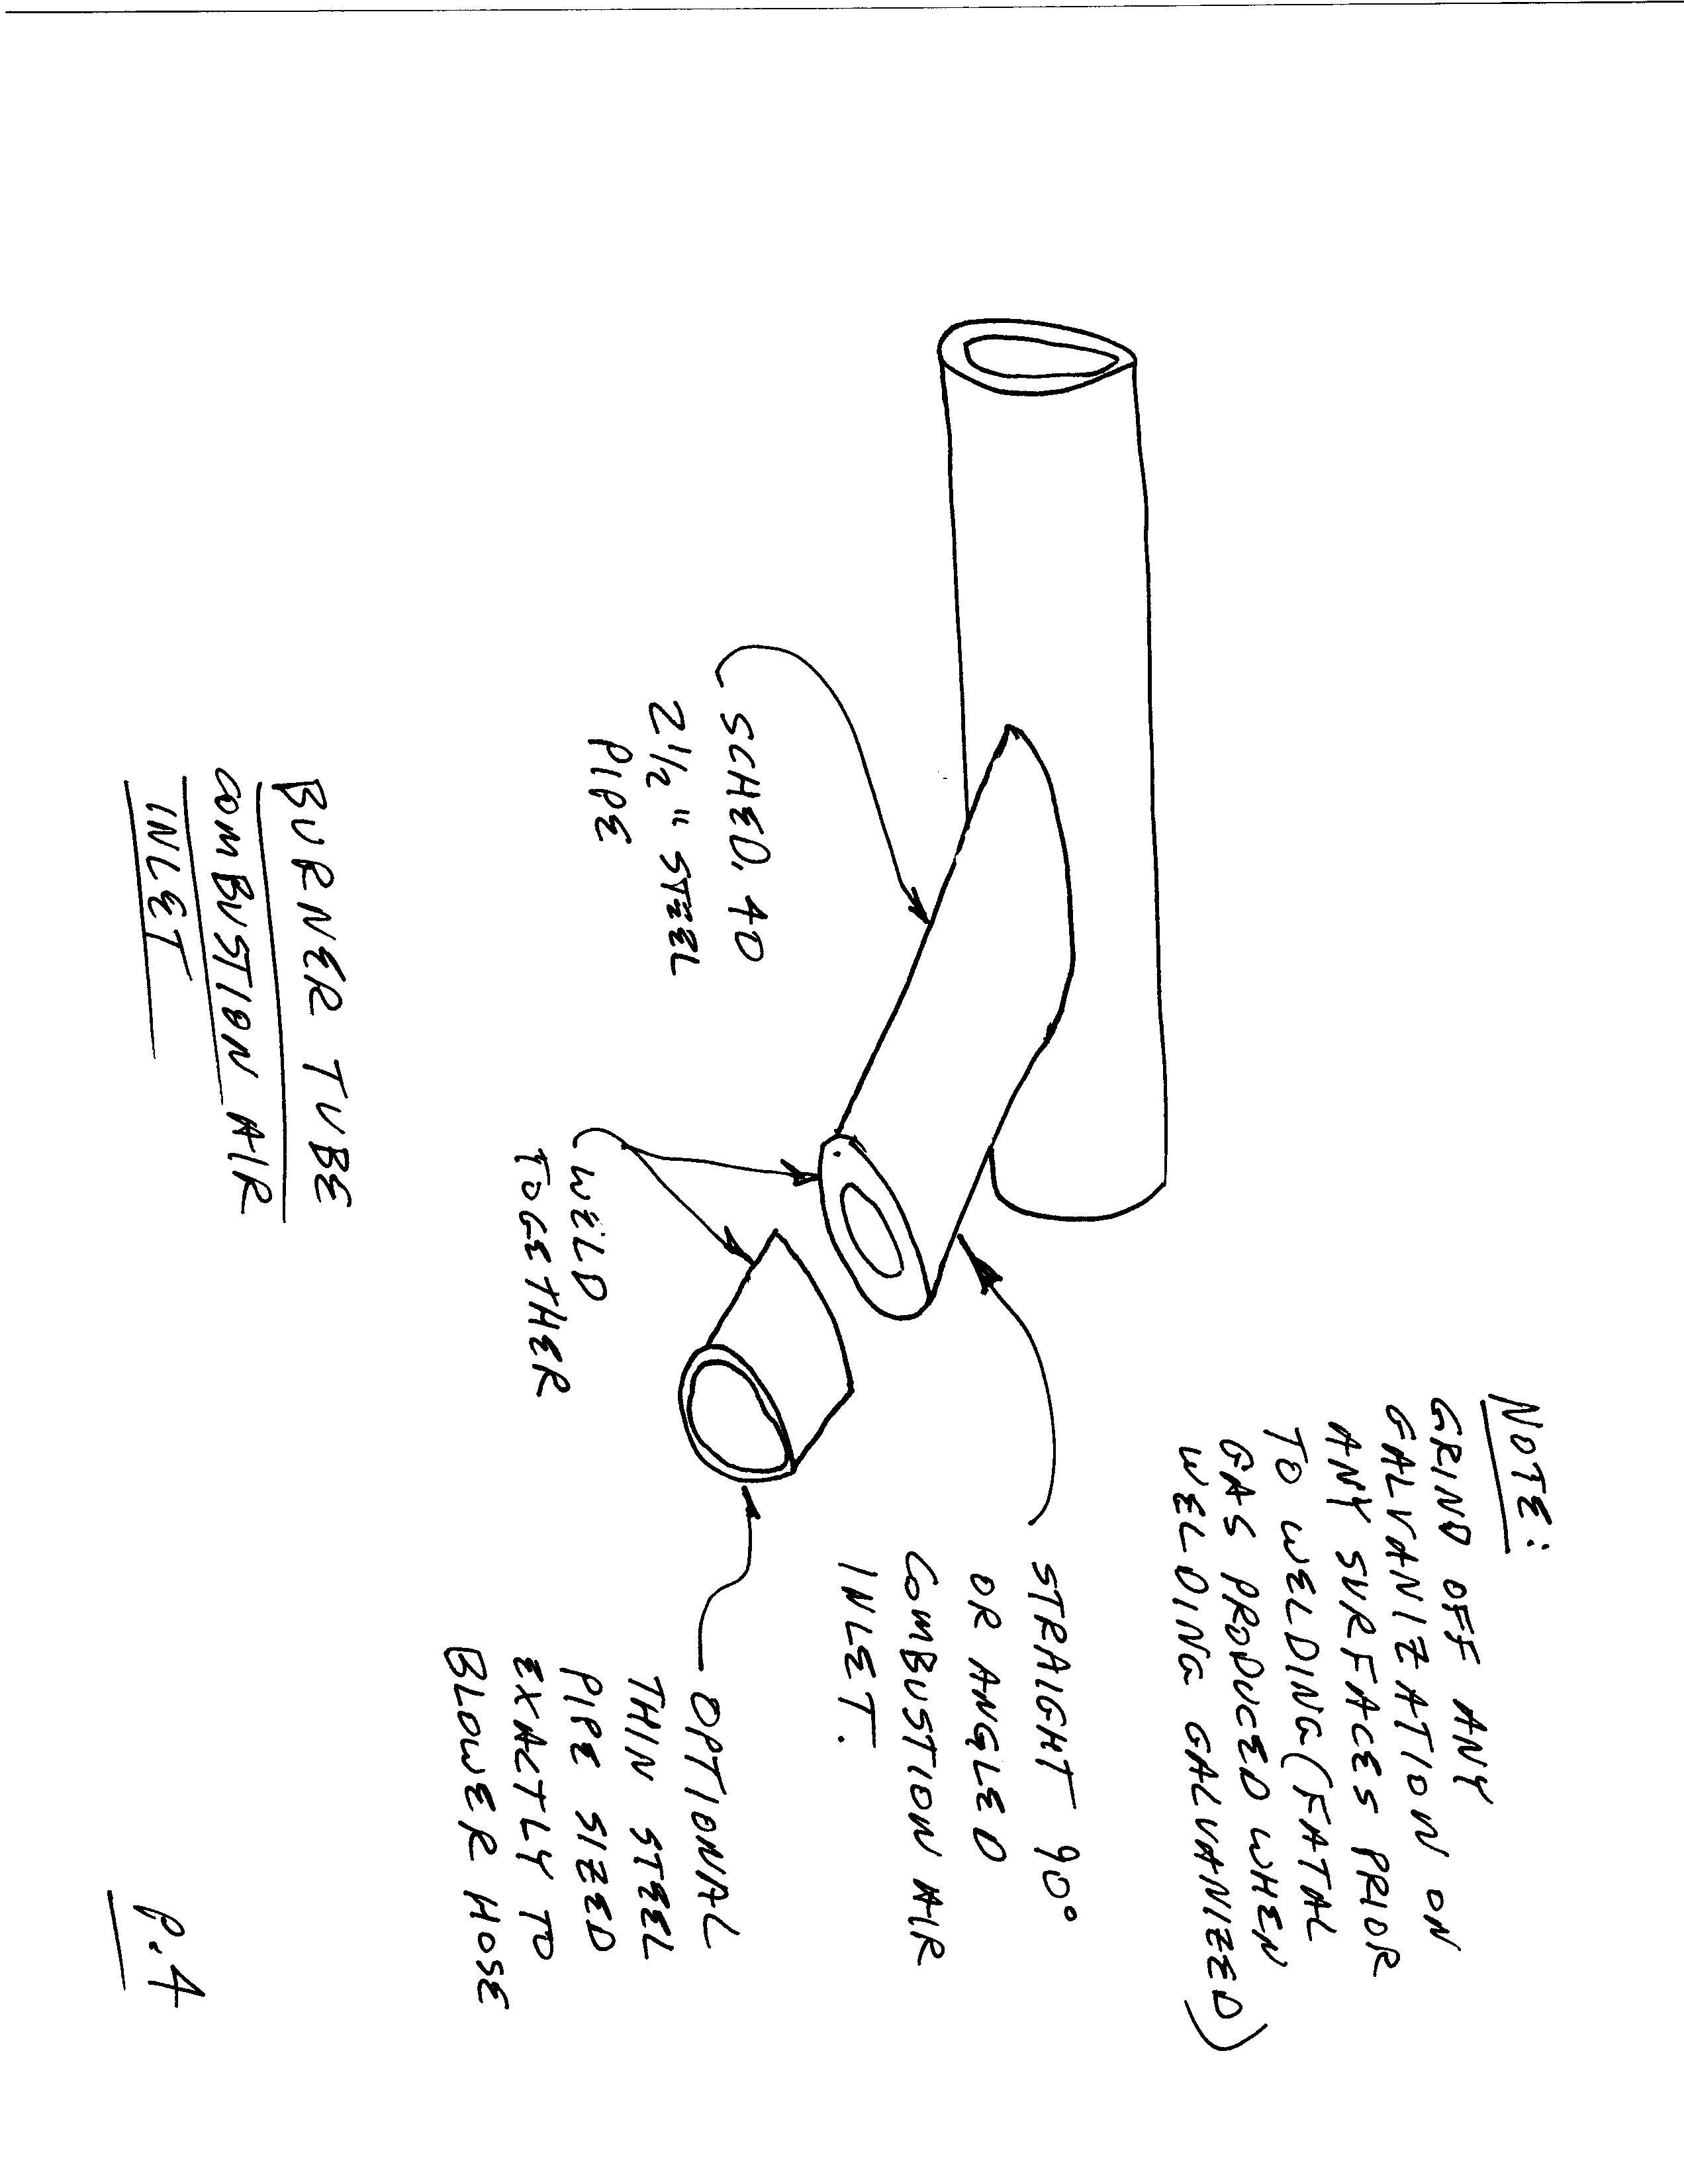 NOTE:
GRIND OFF ANY
GALVANIZATION ON
ANY SURFACES PRIOR
TO WELDING (FATAL
GAS PRODUCED WHEN
WELDING GALVANIZED)
STRAIGHT 90°
OR ANGLED
COMBUSTION AIR
INLET.
SCHED. 40
2 1/2" STEEL
PIPE
WELD
TOGETHER
OPTIONAL
THIN STEEL
PIPE SIZED
EXACTLY TO
BLOWER HOSE
BURNER TUBE
COMBUSTION AIR
INLET
P.4